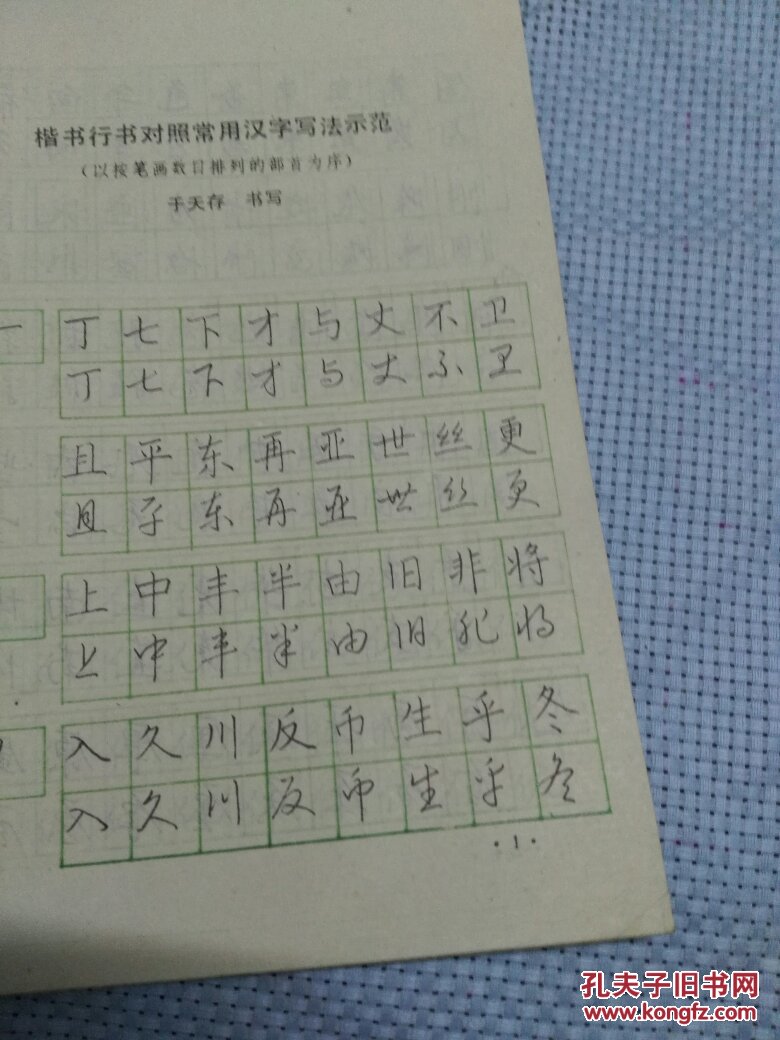 楷书行书对照常用汉字写法示范
（以按笔画数目排列的部首为序）
于天存 书写
一 丁 七 下 才 与 丈 不 卫
丁 七 下 才 与 丈 不 卫
且 平 东 再 亚 世 丝 更
且 平 东 再 亚 世 丝 更
上 中 丰 半 由 旧 非 将
上 中 丰 半 由 旧 非 将
入 久 川 反 币 生 乎 冬
入 久 川 反 币 生 乎 冬
·1·
孔夫子旧书网
www.kongfz.com